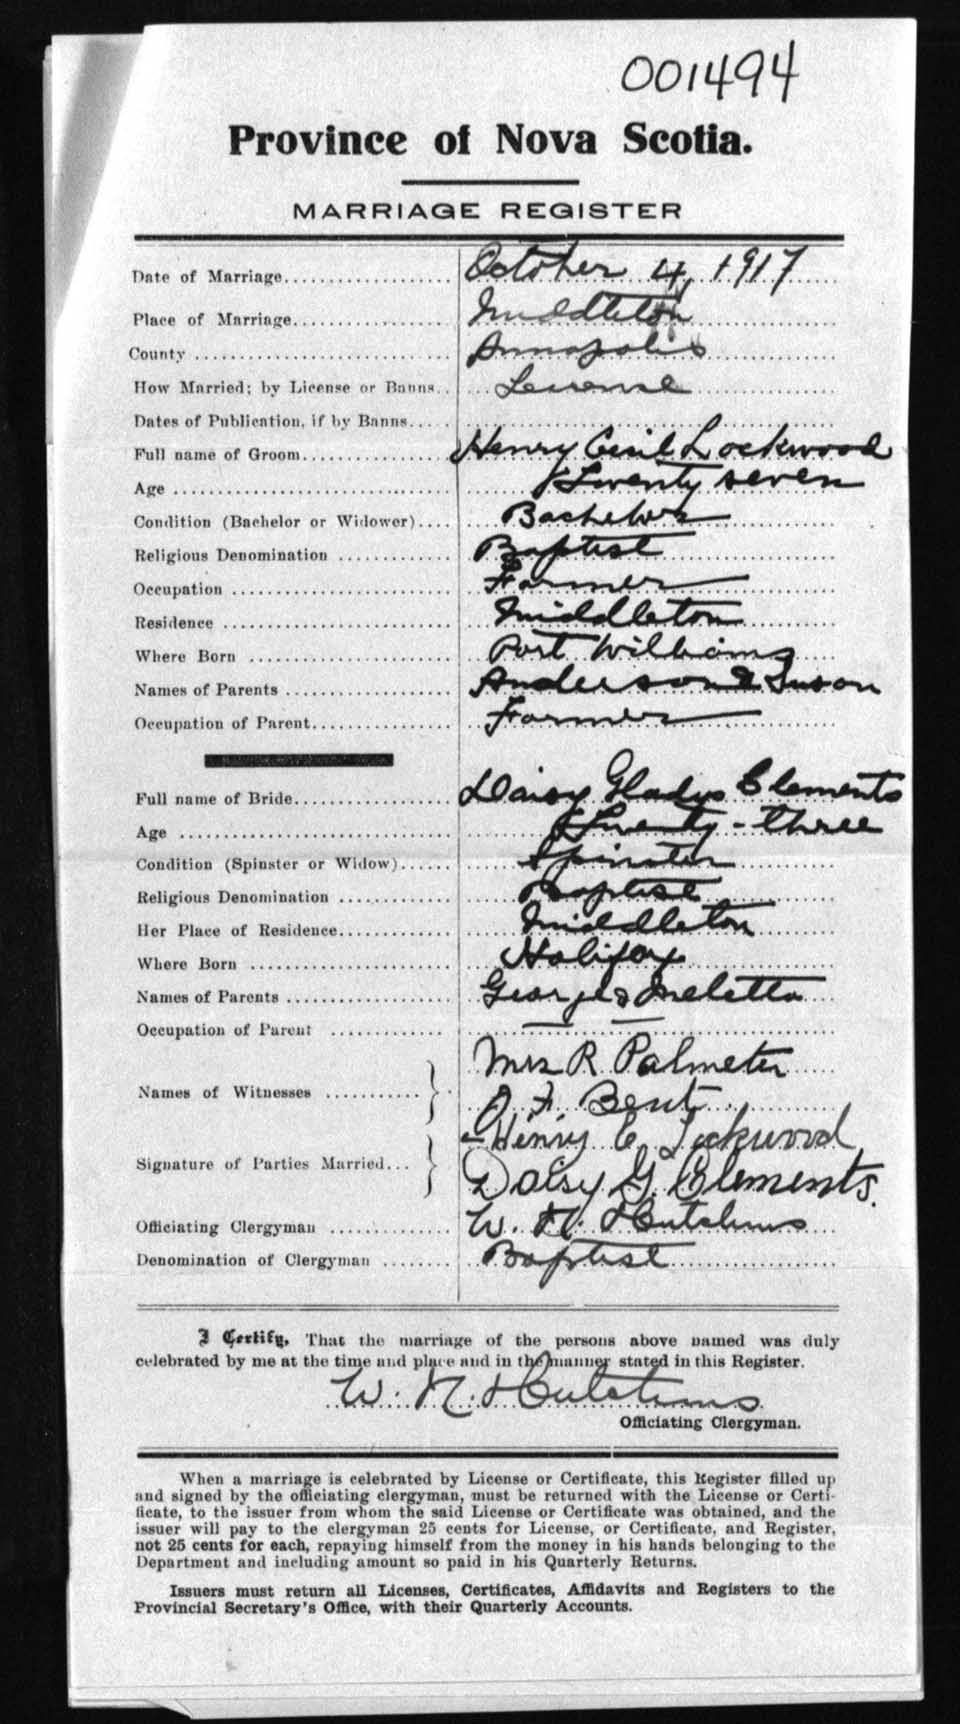 001494
Province of Nova Scotia.
MARRIAGE REGISTER
Date of Marriage October 4, 1917
Place of Marriage Middleton
County Annapolis
How Married; by License or Banns License
Dates of Publication, if by Banns
Full name of Groom Henry Cecil Lockwood
Age Twenty seven
Condition (Bachelor or Widower) Bachelor
Religious Denomination Baptist
Occupation Farmer
Residence Middleton
Where Born Port Williams
Names of Parents Anderson & Susan
Occupation of Parent Farmer
Full name of Bride Daisy Gladys Clements
Age Twenty-three
Condition (Spinster or Widow) Spinster
Religious Denomination Baptist
Her Place of Residence Middleton
Where Born Halifax
Names of Parents George & Meletta
Occupation of Parent —— ——
Mrs R Palmeter
Names of Witnesses
J. F. Bent
Henry C Lockwood
Signature of Parties Married
Daisy G. Clements.
Officiating Clergyman W. N. Hutchins
Denomination of Clergyman Baptist
I Certify, That the marriage of the persons above named was duly
celebrated by me at the time and place and in the manner stated in this Register.
W. N. Hutchins
Officiating Clergyman.
When a marriage is celebrated by License or Certificate, this Register filled up
and signed by the officiating clergyman, must be returned with the License or Certi-
ficate, to the issuer from whom the said License or Certificate was obtained, and the
issuer will pay to the clergyman 25 cents for License, or Certificate, and Register,
not 25 cents for each, repaying himself from the money in his hands belonging to the
Department and including amount so paid in his Quarterly Returns.
Issuers must return all Licenses, Certificates, Affidavits and Registers to the
Provincial Secretary's Office, with their Quarterly Accounts.